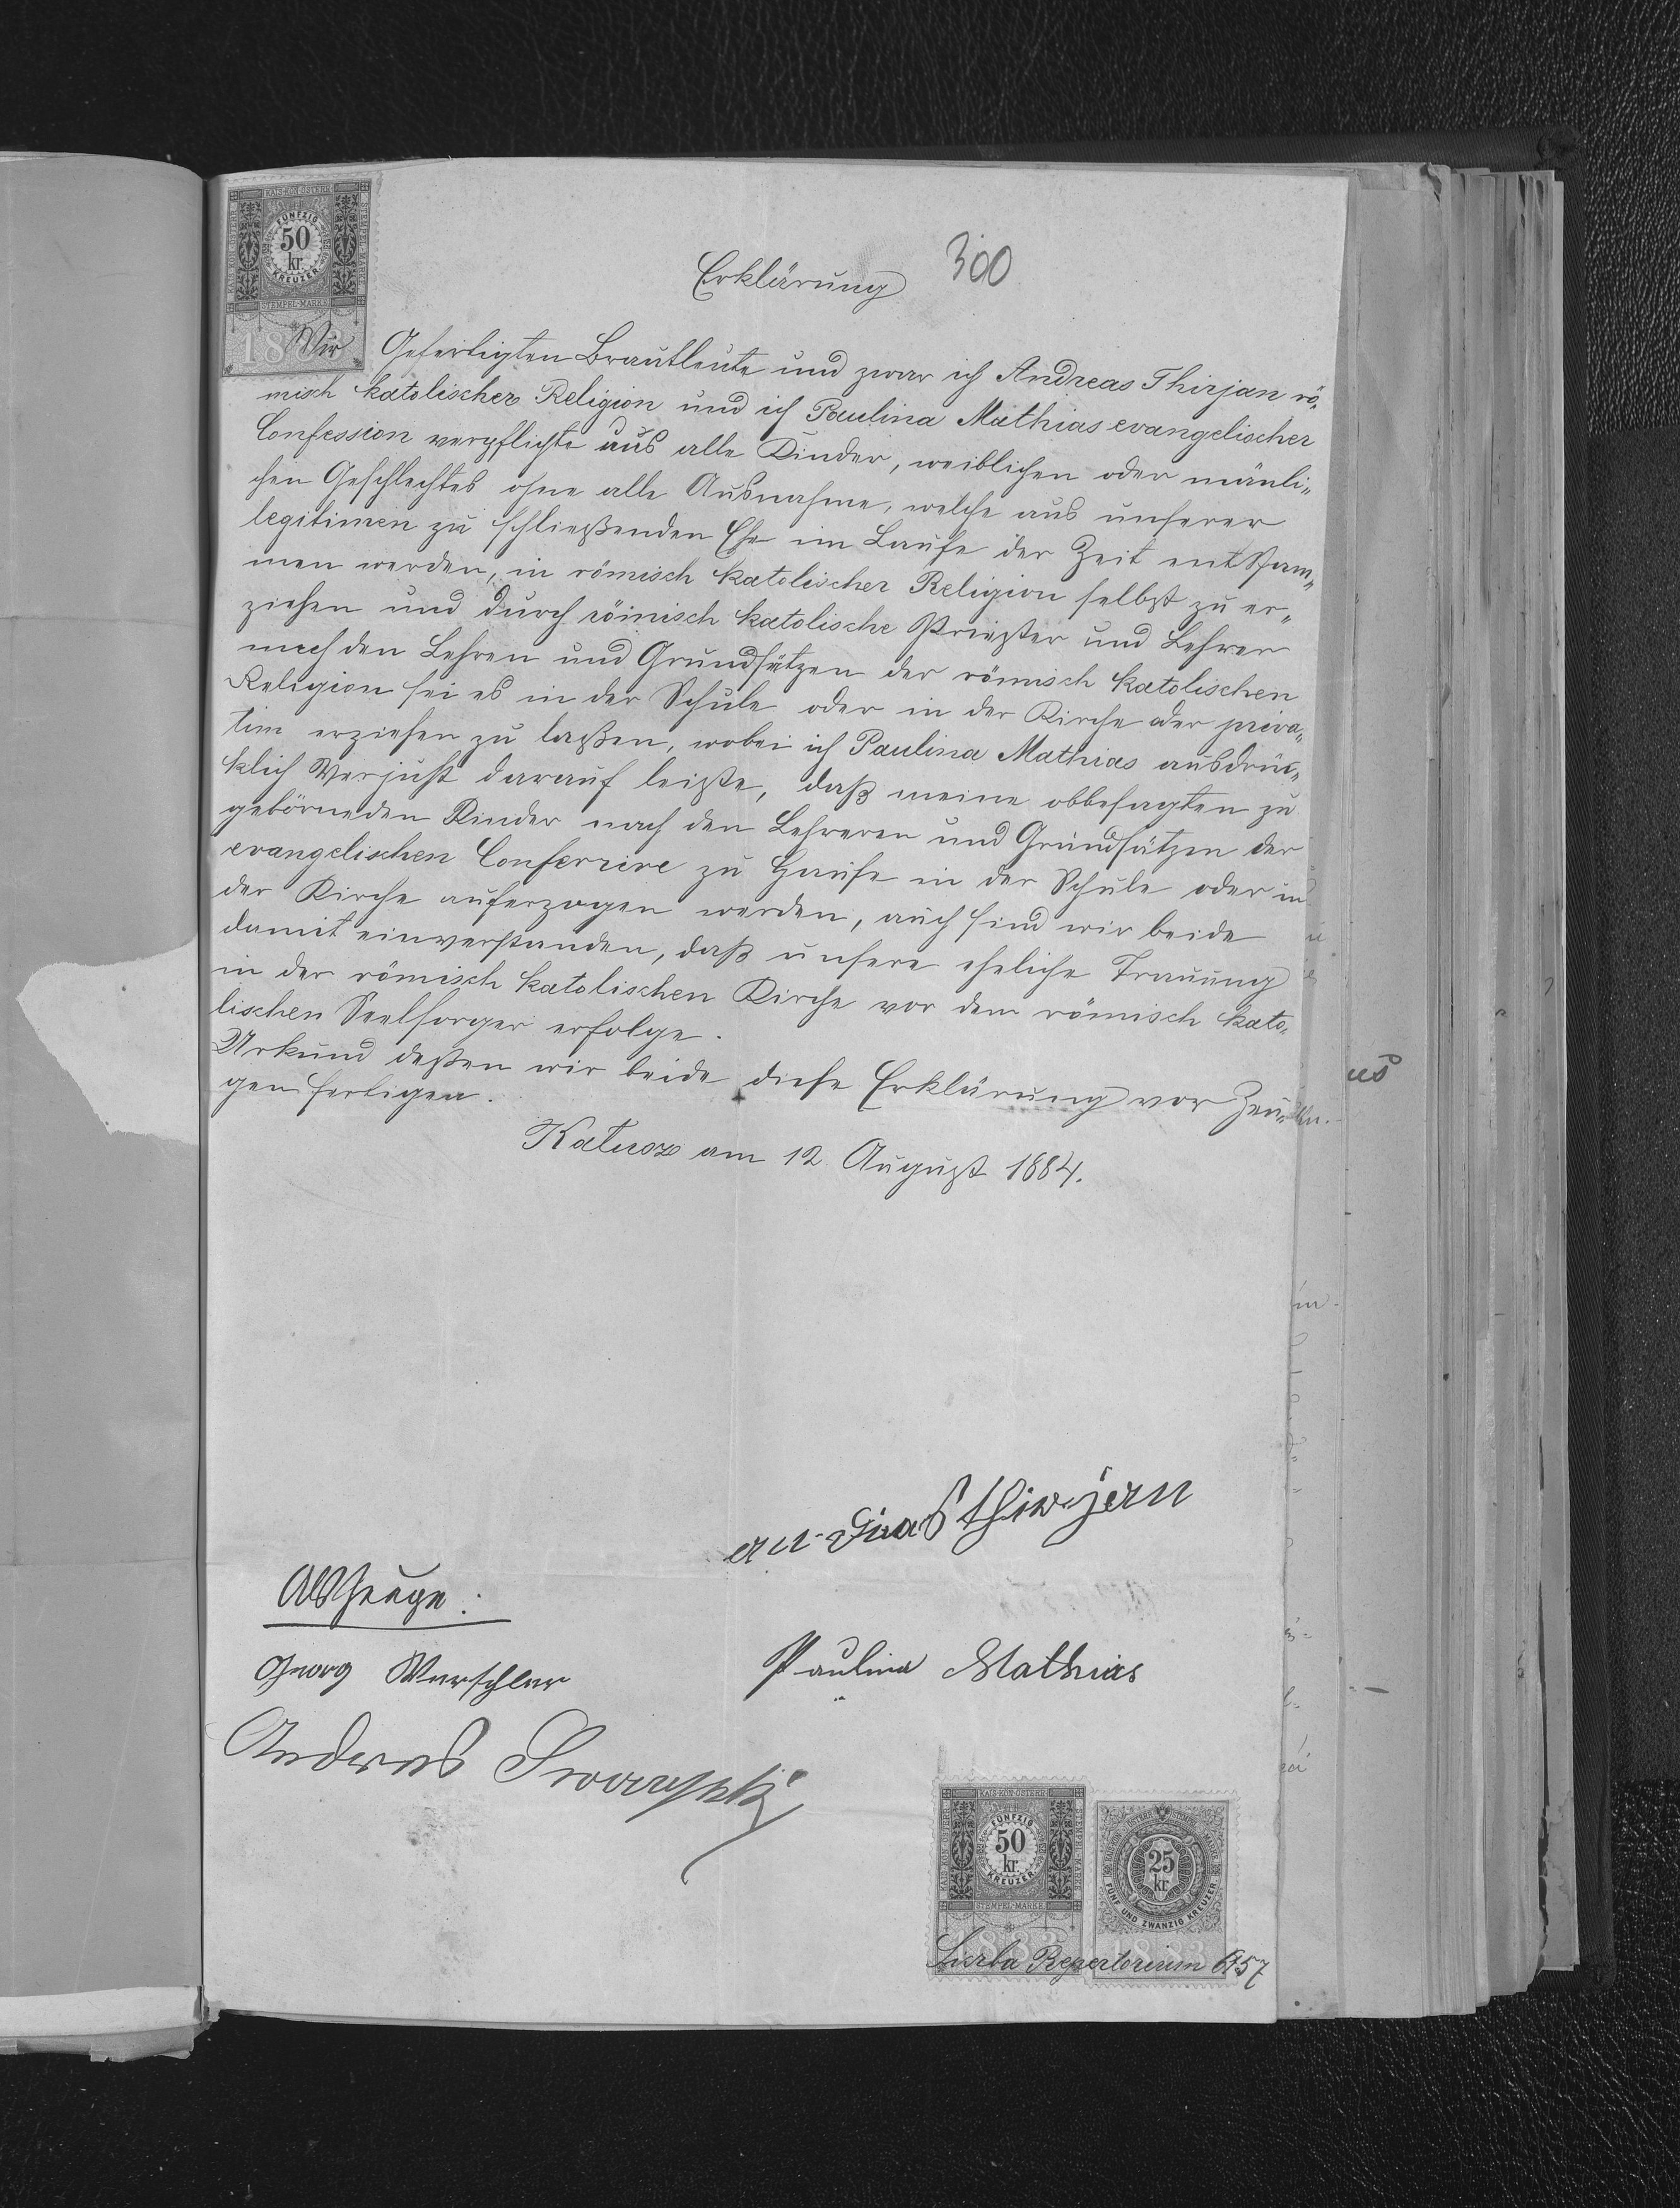 KAIS·KÖN·ÖSTERR
STEMPEL-MARKE
FÜNFZIG
50
kr.
KREUZER
STEMPEL-MARKE
300
Erklärung
Wir Gefertigten Brautleute und zwar ich Andreas Thirjan rö„
misch katolischer Religion und ich Paulina Mathias evangelischer
Confession verpflichte uns alle Kinder, weiblichen oder mänli„
chen Geschlechtes ohne alle Ausnahme, welche aus unserer
legitimen zu schließenden Ehe im Laufe der Zeit entstam„
men werden, in römisch katolischer Religion selbst zu er„
ziehen und durch römisch katolische Priester und Lehrer
nach den Lehren und Grundsätzen der römisch katolischen
Religion sei es in der Schule oder in der Kirche oder priva„
tim erziehen zu laßen, wobei ich Paulina Mathias ausdrük„
klich Verzicht darauf leiste, daß meine obbesagten zu
gebörneden Kinder nach den Lehreren und Grundsätzen der
evangelischen zu Hause in der Schule oder in
der Kirche auferzogen werden, auch sind wir beide
damit einverstanden, daß unsere eheliche Trauung
in der römisch katolischen Kirche vor dem römisch kato„
lischen Seelsorger erfolge.
Urkund deßen wir beide diese Erklärung vor Zeu„
gen fertigen.
Katusz am 12 August 1884.
andreas thirjan
Als Zeuge:
Georg Werschler
Paulina Mathias
Andreas
KAIS·KÖN·ÖSTERR
FÜNFZIG
50
kr.
KREUZER
STEMPEL-MARKE
25
kr
FÜNF UND ZWANZIG KREUZER
1883
Liczba Repertorium 6157